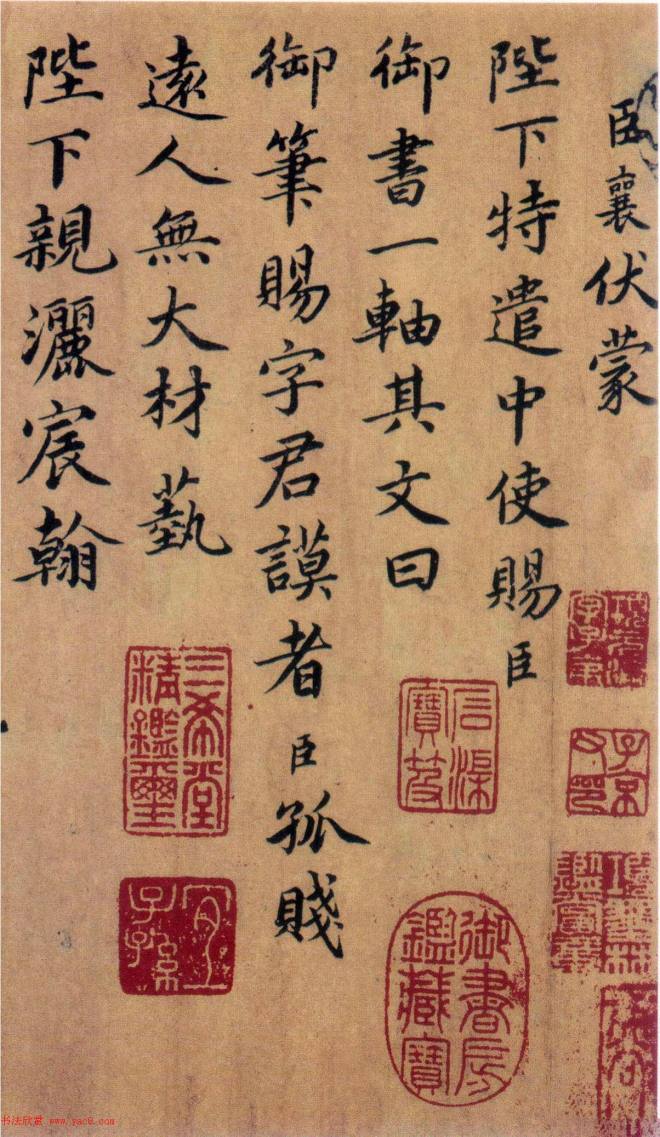 臣襄伏蒙
陛下特遣中使賜臣
御書一軸其文曰
御筆賜字君謨者臣孤賤
遠人無大材藝
陛下親灑宸翰
子京父印
信溪寶笈
御書房鑑藏寶
三希堂精鑑璽
宜子孫
书法欣赏 www.yac8.com